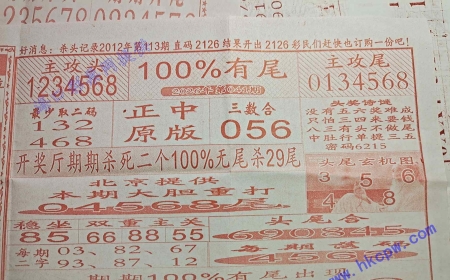 好消息：杀头记录2012年第113期 直码 2126 结果开出 2126 彩民们赶快也订购一份吧！
主攻头
1234568
100%有尾
主攻尾
0134568
最少取二码
132
468
正中
原版
三数合
056
头奖诗谜
没有五六奖难成
只怕三四来要钱
八三有头不做尾
中胜行单提三五
密码6215
开奖厅期期杀死二个100%无尾杀29尾
头尾玄机图
3 5 6
4 8
北京提供
本期大胆重打
04568尾
稳坐 双重主关
85 66 88 55
头尾合
690845
每期 03、82、67
二字 93、87、12
www.hkcpw.com